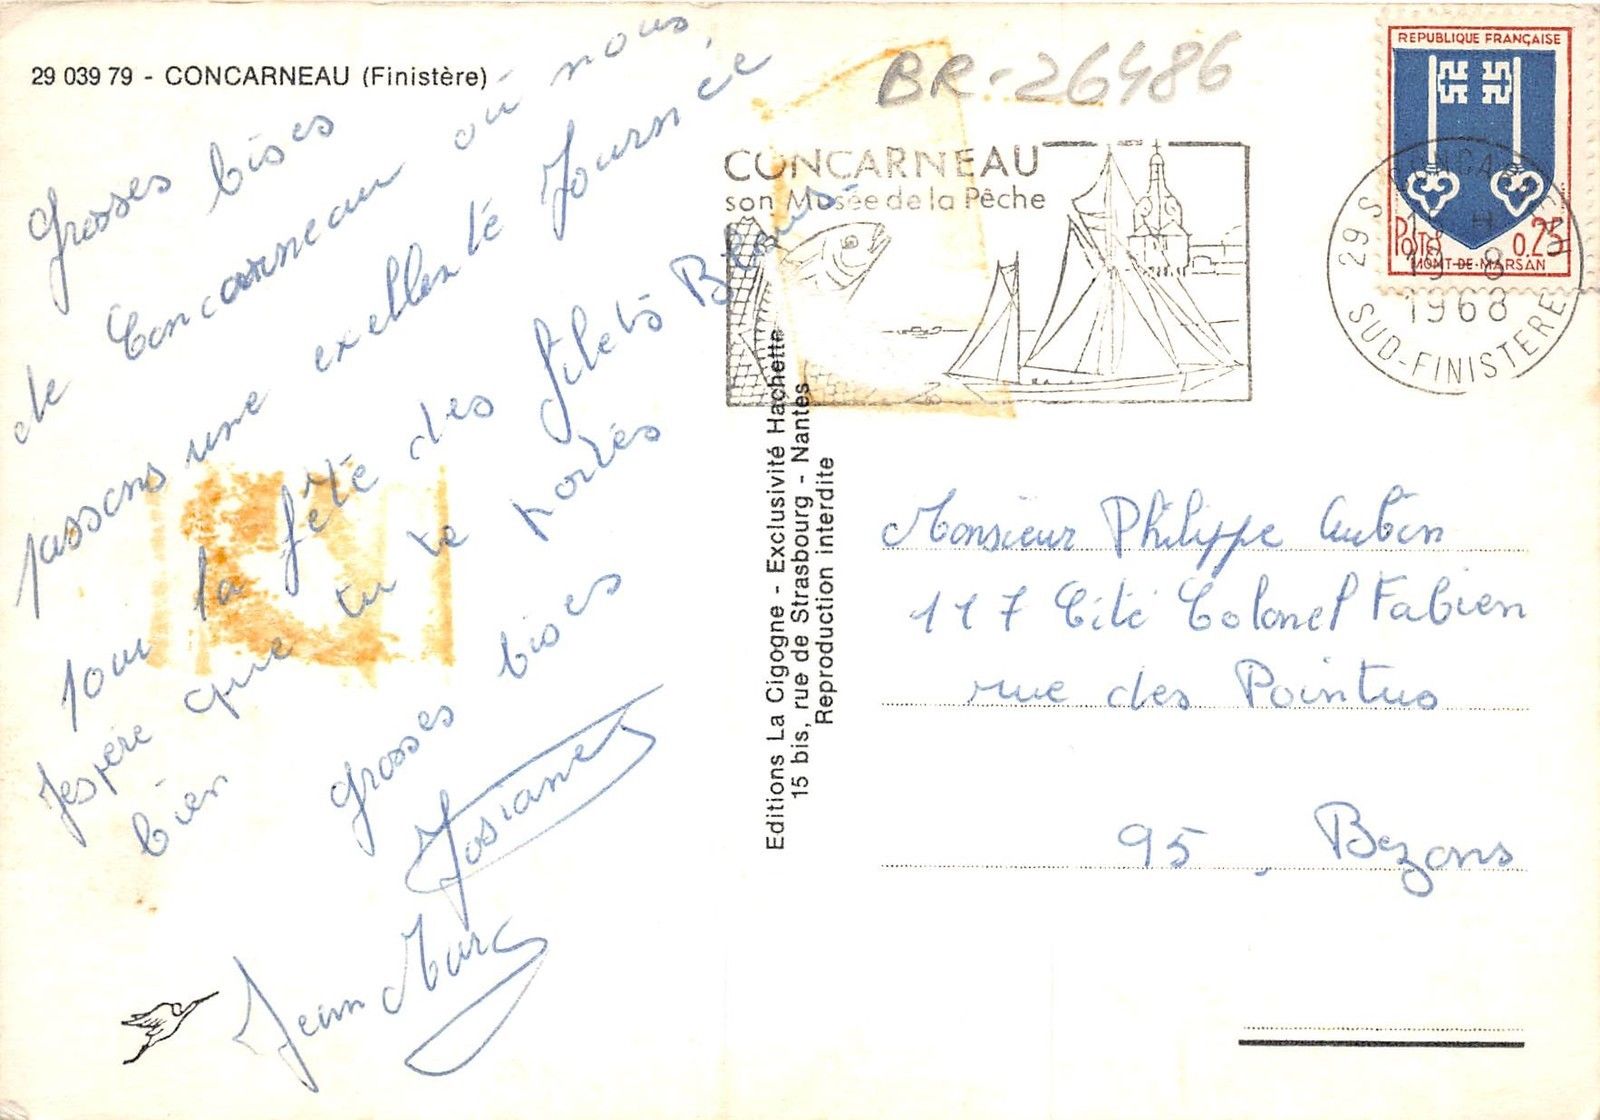 29 039 79 - CONCARNEAU (Finistère)
Grosses bises
de Concarneau où nous
passons une excellente Journée
pour la fête des filets Bleus.
J'espère que tu te portes
bien grosses bises
Josiane
Jean Marc
Editions La Cigogne - Exclusivité Hachette
15 bis, rue de Strasbourg - Nantes
Reproduction interdite
BR-26486
CONCARNEAU
son Musée de la Pêche
REPUBLIQUE FRANÇAISE
POSTES 0,25
MONT-DE-MARSAN
29 S CONCARNEAU
18 - 8
1968
SUD-FINISTERE
Monsieur Philippe Aubin
117 Cité Colonel Fabien
rue des Pointus
95, Bezons